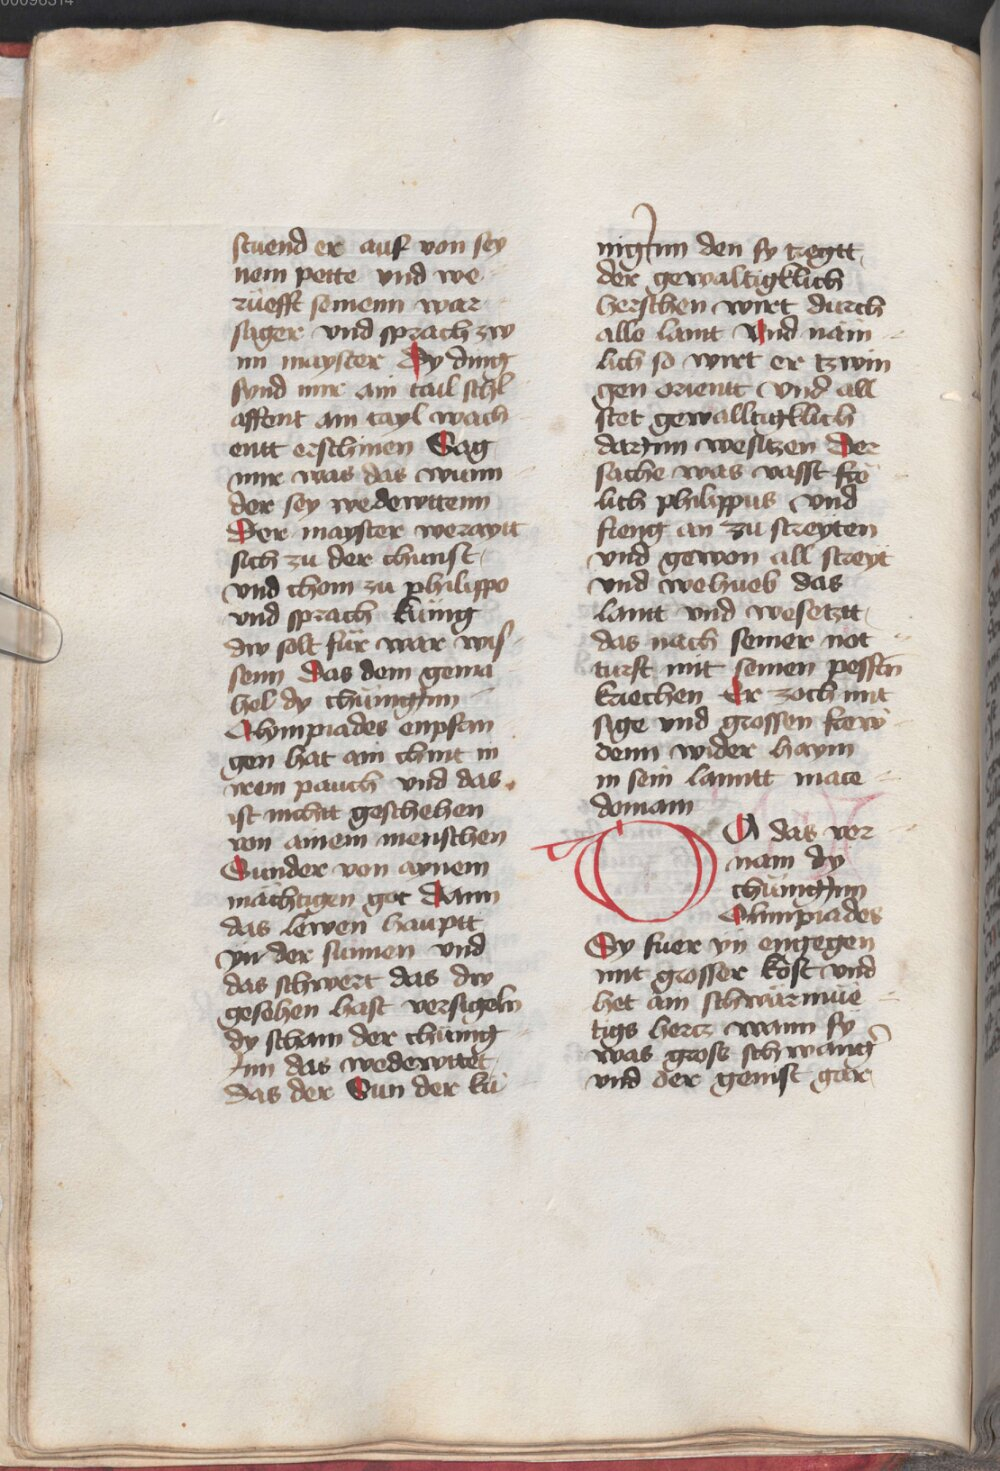 stuend er auf von sey
nem pette vnd we
rüefft seinenn war
sager vnd sprach zw
im mayster Dy ding
synd mir ain tail schl
affent ain tayl wach
entt erschinen Sag
mir was das wunn
der sey wedewttenn
Der mayster weraytt
sich zu der chunst
vnd chom zu philippo
vnd sprach küng
dw solt für war wis
senn Das dem gema
hel dy chünigInn
Olympiades enpfan
gen hat ain chint in
irem pauch vnd das
ist nicht geschehen
von ainem menschen
Sunder von aynem
mächtigen got Dann
das lewen hauptt
yn der sunnen vnd
das schwert das dw
gesehen hast versigeln
dy scham der chünig
Inn das wedewttet
das der Sun der kü
nigInn den sy tregtt
der gewaltigklich
herschen wirt durch
alle lannt Vnd näm
lich so wirt er tzwin
gen orientt vnd all
stet gewalltigklich
darInn wesitzen Der
sache was vasst frö
lich philippus vnd
fieng an zu streyten
vnd gewon all streyt
vnd wehueb das
lannt vnd wesetztt
das nach seiner not
turft mit seinen pessten
kriechen Er zoch mit
sige vnd grossen frew
denn wider haym
in sein lanntt mace
doniam
DA das ver
nam dy
chünigInn
Olimpiades
Sy fuer yn engegen
mit grosser köst vnd
het ain schwärmüe
tigs hertz wann sy
was gross schwang
vnd der genist gar